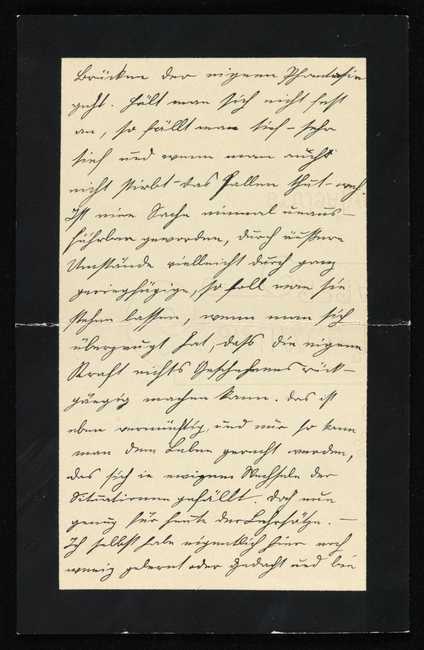 Brücken der eigenen Phantasie
geht. Hält man sich nicht fest
an, so fällt man tief – sehr
tief und wenn man auch
nicht stirbt – das Fallen thut – weh.
Ist eine Sache einmal unaus-
führbar geworden, durch äußere
Umstände vielleicht durch ganz
geringfügige, so soll man sie
stehen lassen, wenn man sich
überzeugt hat, daß die eigene
Kraft nichts Geschehenes rück-
gängig machen kann. Das ist
eben vernünftig und nur so kann
man dem Leben gerecht werden,
das sich in ewigem Wechseln der
Situationen gefällt. Doch nun
genug für heute der Lehrsätze. –
Ich selbst habe eigentlich hier noch
wenig gelernt oder gedacht und bin